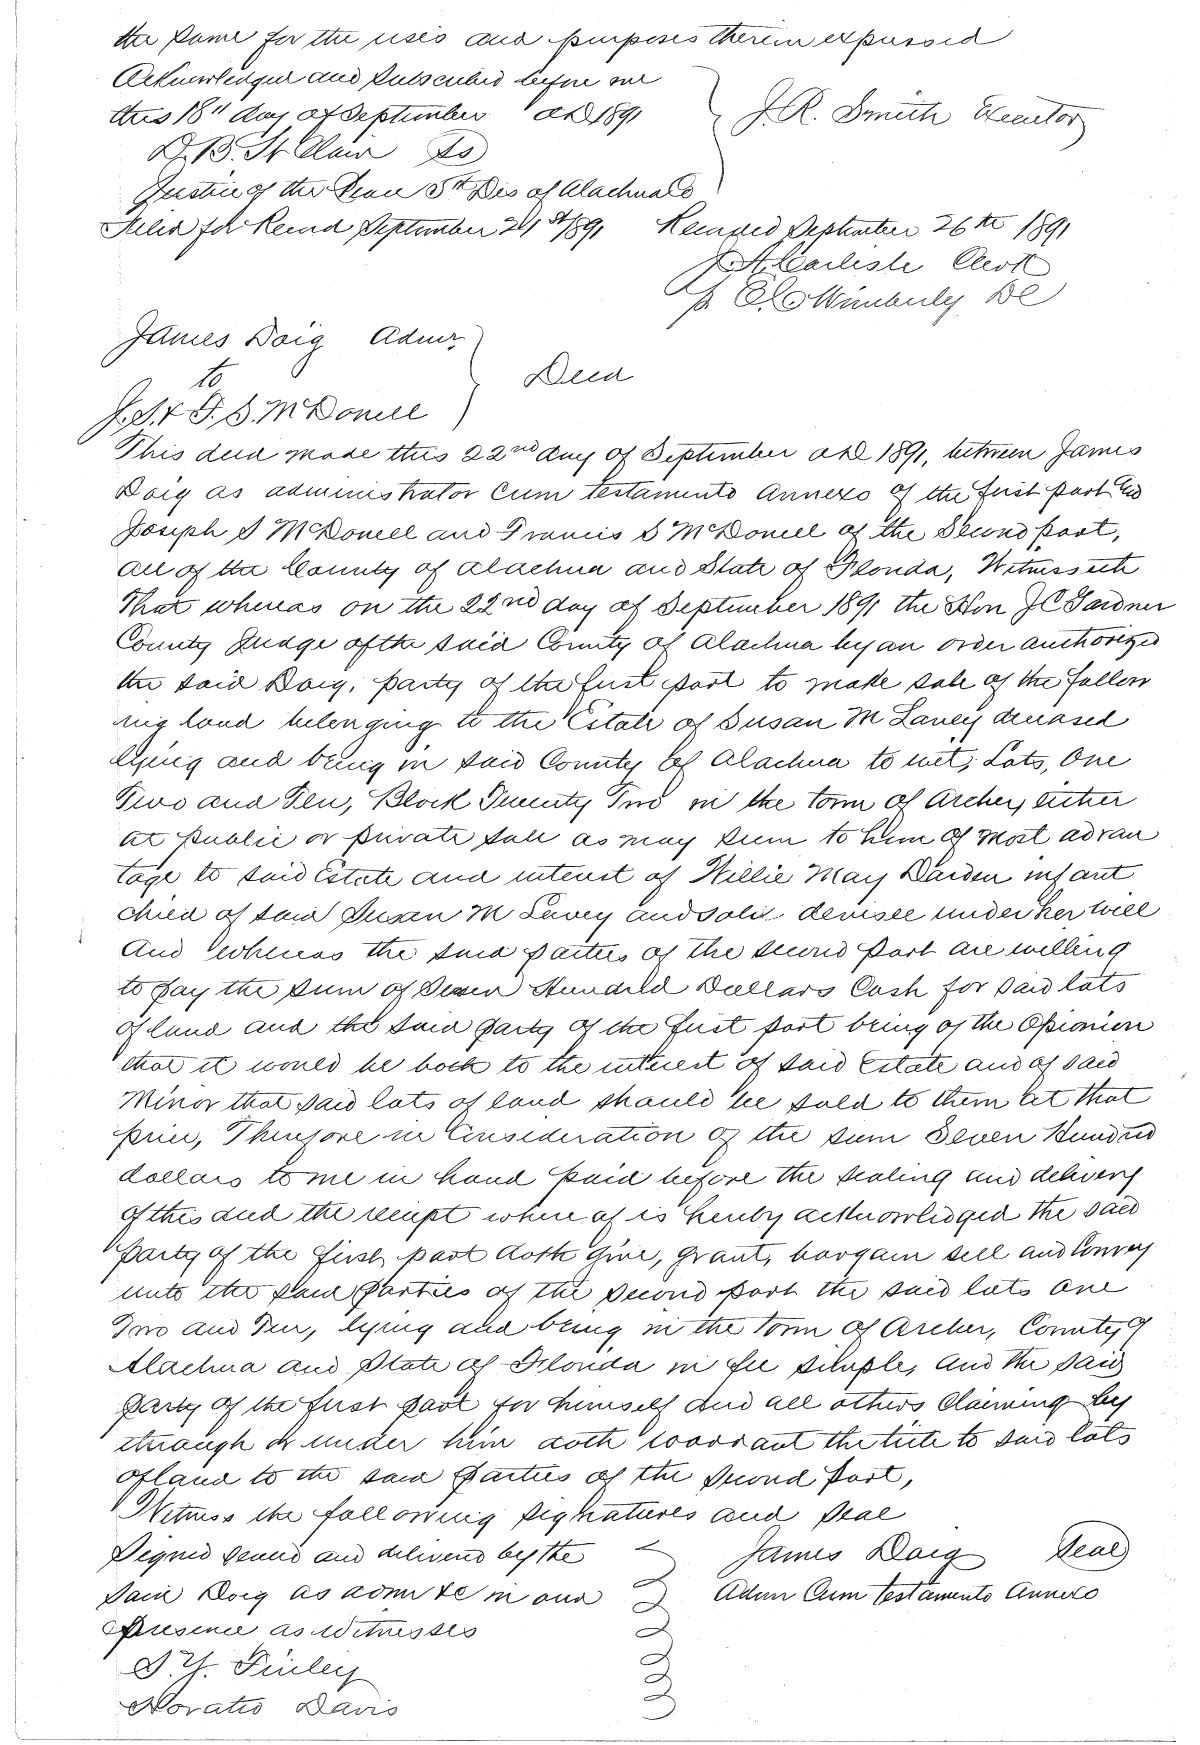 the same for the uses and purposes therein expressed
Acknowledged and subscribed before me
this 18th day of September AD 1891
J. R. Smith Executor
D. B. St Clair
Justice of the Peace 5th Dis of Alachua Co
Filed for Record September 21st 1891 Recorded September 26th 1891
J. A. Carlisle Clerk
Wimberly DC
James Doig Admr
to
Deed
J. S. & F. S. McDonell
This deed made this 22nd day of September AD 1891, between James
Doig as administrator Cum testamento Annexo of the first part and
Joseph S McDonell and Francis S McDonell of the Second part,
all of the County of Alachua and State of Florida, Witnesseth
That whereas on the 22nd day of September 1891 the Hon J C Gardner
County Judge of the said County of Alachua by an order authorized
the said Doig, party of the first part to make sale of the follow
ing land belonging to the Estate of Susan M Lavey deceased
lying and being in said County of Alachua to wit; Lots, One
Two and Ten, Block Twenty Two in the town of Archer, either
at public or private sale as may seem to him of most advan
tage to said Estate and interest of Willie May Darden infant
child of said Susan M Lavey and sole devisee under her will
And whereas the said parties of the second part are willing
to pay the sum of Seven Hundred Dollars Cash for said lots
of land and the said party of the first part being of the Opionion
that it would be to the interest of said Estate and of said
Minor that said lots of land should be sold to them at that
price, Therefore in Consideration of the sum Seven Hundred
dollars to me in hand paid before the sealing and delivery
of this deed the receipt where of is hereby acknowledged the said
party of the first part doth give, grant, bargain sell and Convey
unto the said parties of the second part the said lots one
Two and Ten, lying and being in the town of Archer, County of
Alachua and State of Florida in fee simple, and the said
party of the first part for himself and all others Claiming by
through or under him doth warrant the title to said lots
of land to the said parties of the second part,
Witness the following signatures and seal
Signed sealed and delivered by the James Doig Seal
said Doig as admr &c in our Admr Cum testamento Annexo
presence as witnesses
Finley
Horatio Davis